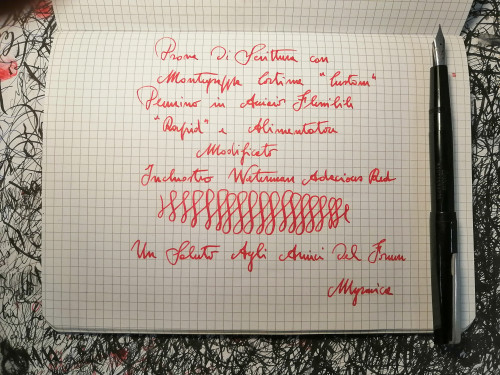 Prova Di Scrittura con
Montegrappa Extra "Custom"
Pennino in Acciaio Flessibile
"Rapid" e Alimentatore
Modificato
Inchiostro Waterman Adacious Red
Un Saluto Agli Amici Del Forum